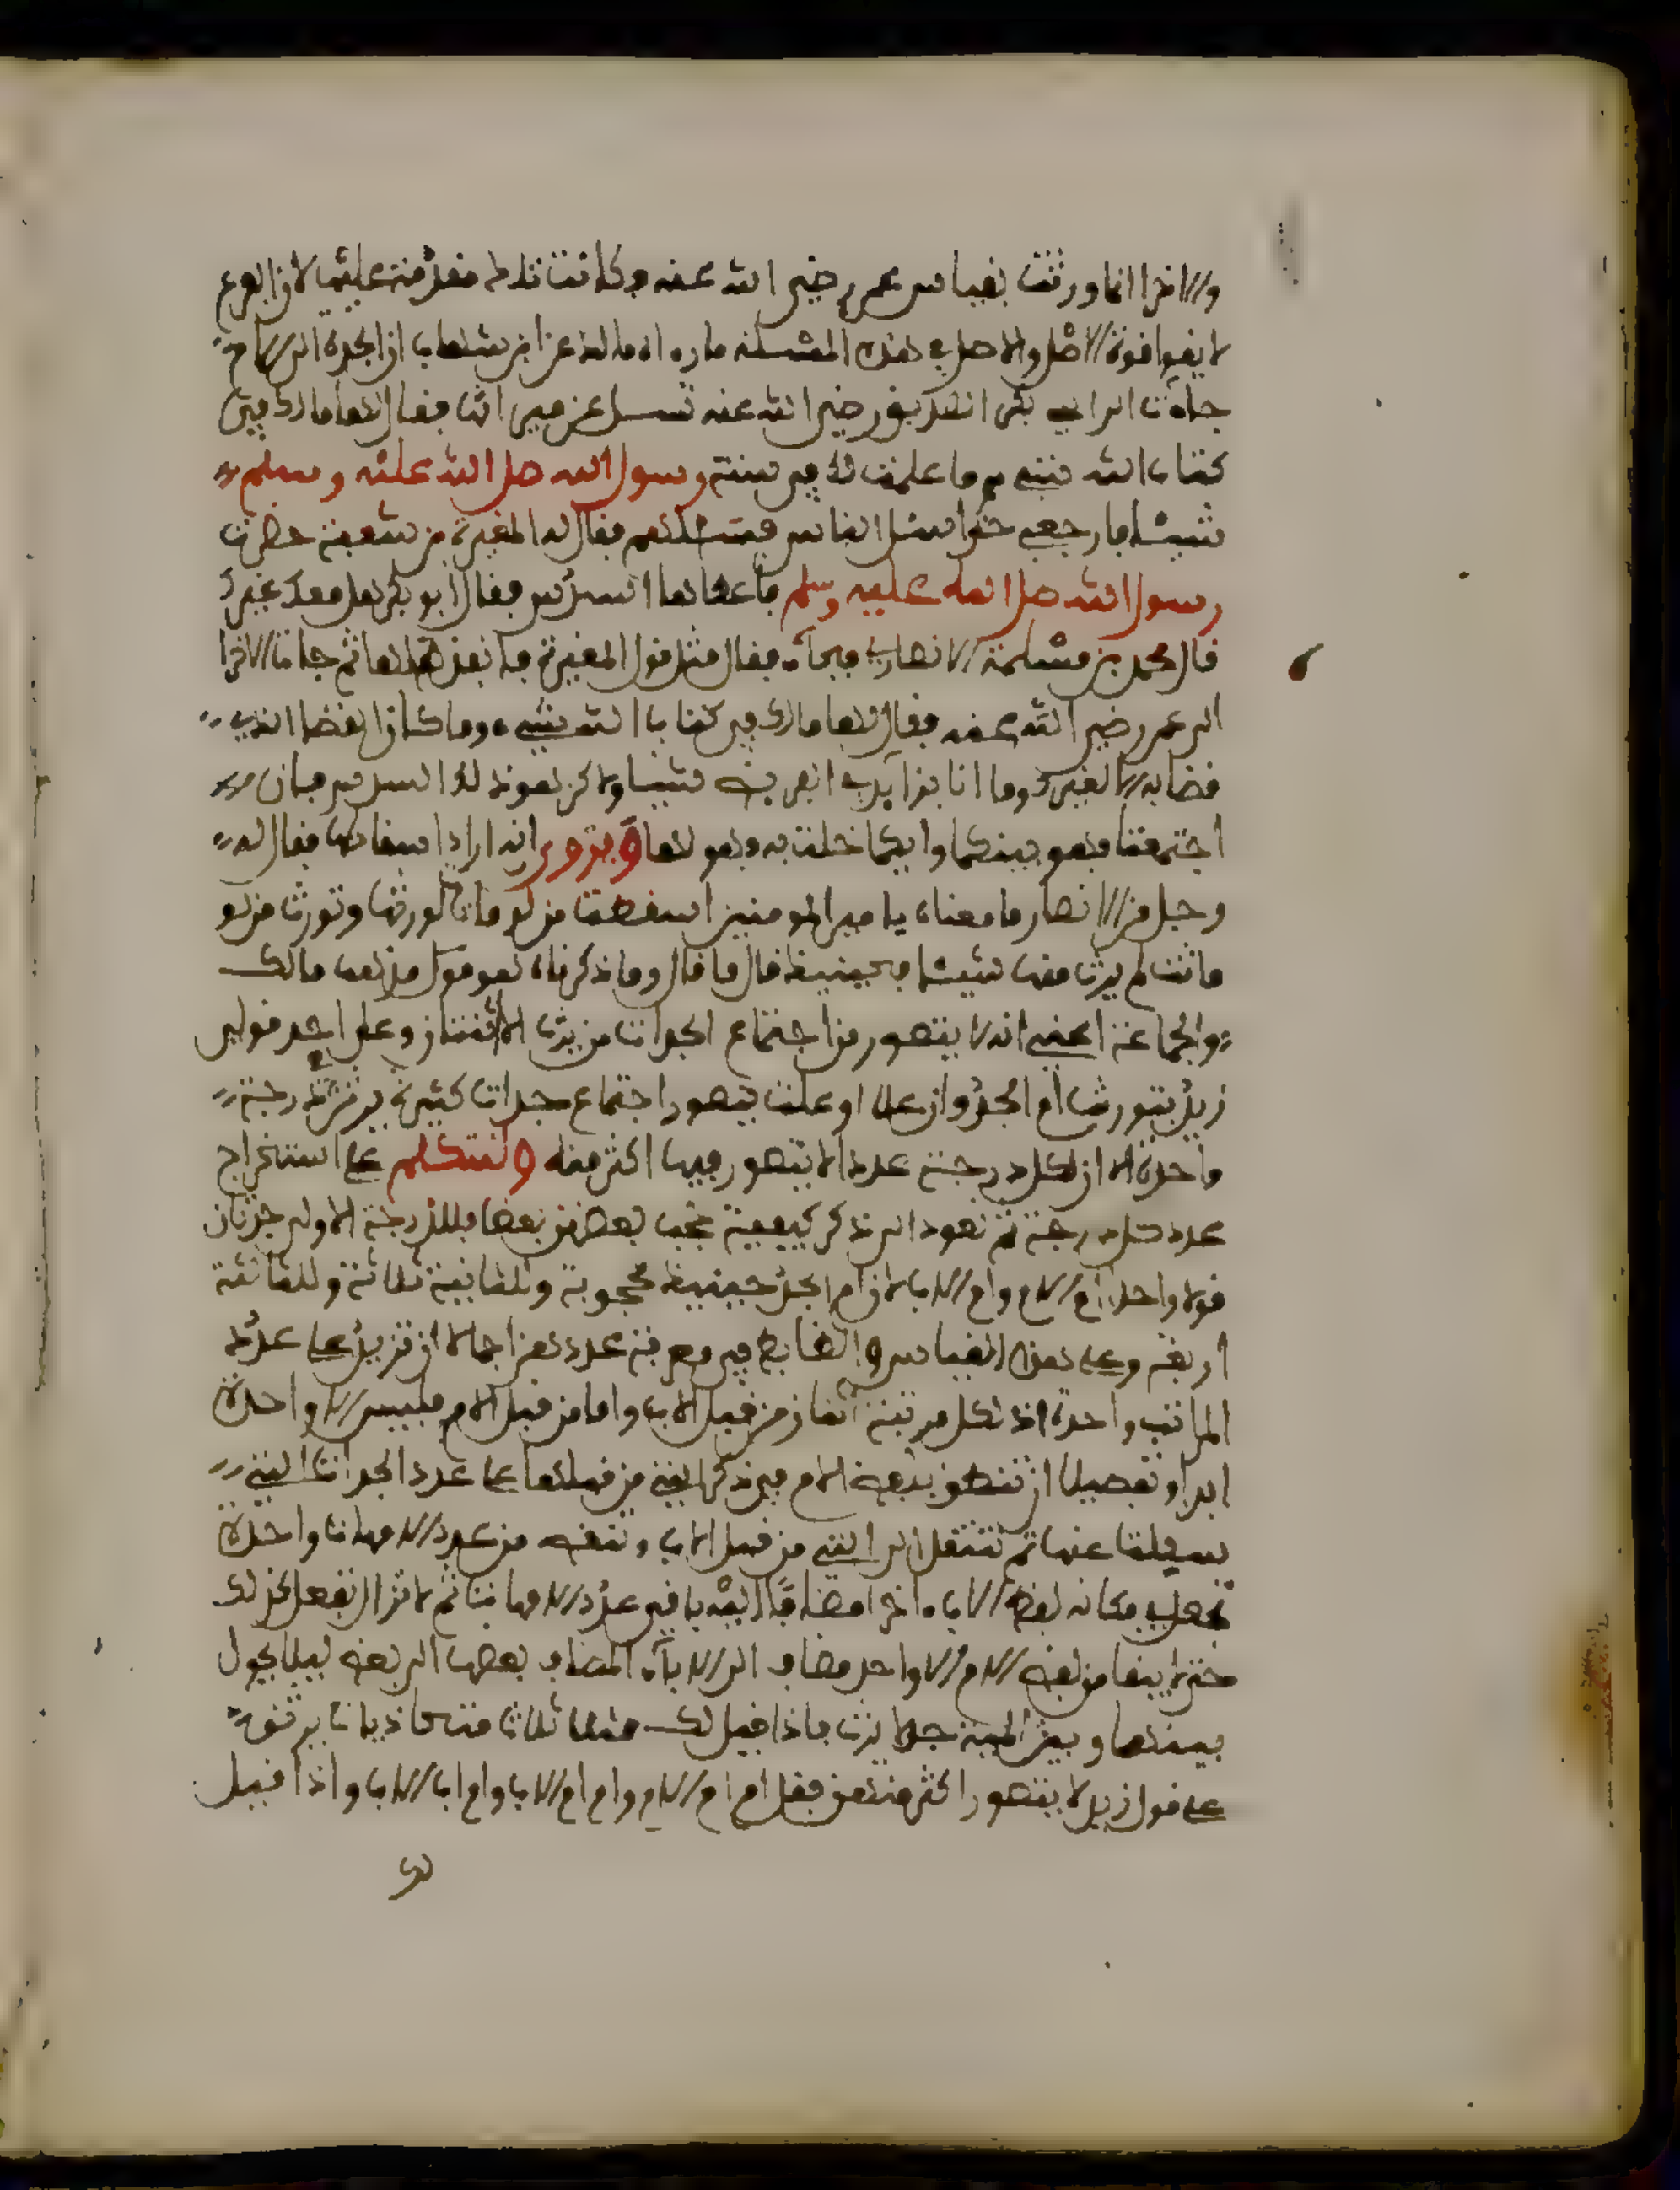 والاخرا انما ورثت بقياس عمر رضي الله عنه وكانت تلك مقدمة عليها لان الفرع
لا يقوا قوة الاصل والاصل في هذه المسئلة ما رواه مالك عن ابن شهاب ان الجدة ام الام
جاءت الى ابي بكر الصديق رضي الله عنه تسئل عن ميراثها فقال لها مالك في
كتاب الله شيء وما علمت لك في سنة رسول الله صلى الله عليه وسلم
شيئا فارجعي حتى اسئل الناس فسئلهم فقال له المغيرة بن شعبة حضرت
رسول الله صلى الله عليه وسلم فأعطاها السدس فقال ابو بكر هل معك غيرك
قال محمد بن مسلمة الانصاري فجاء فقال مثل قول المغيرة فانفذه لها ثم جاءت الاخرا
الى عمر رضي الله عنه فقال لها مالك في كتاب الله شيء وما كان القضا الذي
قضا به الا لغيرك وما انا بزايد في الفريضة شيئا ولاكن هو ذلك السدس فان
اجتمعتما فهو بينكما وايكما خلت به فهو لها ويروى انه اراد اسقاطها فقال له
رجل من الانصار ما معناه يا امير المومنين اسقطت من لو ماتت لورثها وتورث من لو
ماتت لم يرث منها شيئا فحينيذ قال ما قال وما ذكرناه هو قول مذهب مالك
والجماعة اعني انه لا يتصور من اجتماع الجدات من يرث الا اثنتان وعلى احد قولي
زيد بتوريث ام الجد وان علا او علت يتصور اجتماع جدات كثيرة يرثن في درجة
واحدة الا ان لكل درجة عددا لا يتصور فيها اكثر منه ولنتكلم على استخراج
عدد كل درجة ثم نعود الى ذكر كيفية حجب بعضهن بعضا فللدرجة الاولى جدتان
قولا واحدا ام الام وام الاب لان ام الجد حينيذ محجوبة وللثانية ثلاثة وللثالثة
اربعة وعلى هذا القياس والضابط في معرفة عددهن اجمالا ان تزيد على عدد
المراتب واحدة اذ لكل مرتبة من قبل الاب واما من قبل الام فليس الا واحدة
ابدا وتفصيلا ان تنطق بلفظ الام في ذكر التي من قبلها على عدد الجدات التي
سيلت عنها ثم تنتقل الى التي من قبل الاب وتنقص من عدد الامهات واحدة
تجعل في مكانه لفظ الاب واخرا مضافا اليه باقي عدد الامهات ثم لا تزال تفعل كذلك
حتى لا يبقا من لفظ الام الا واحد مضاف الى الاباء المضاف بعضها الى بعض ليلا يحول
بينها وبين الميت جد لا يرث فاذا قيل لك مثلا ثلاث متحاذيات يرثن
على قول زيد لا يتصور اكثر منهن فقل ام ام الام وام ام الاب وام اب الاب واذا قيل
لك